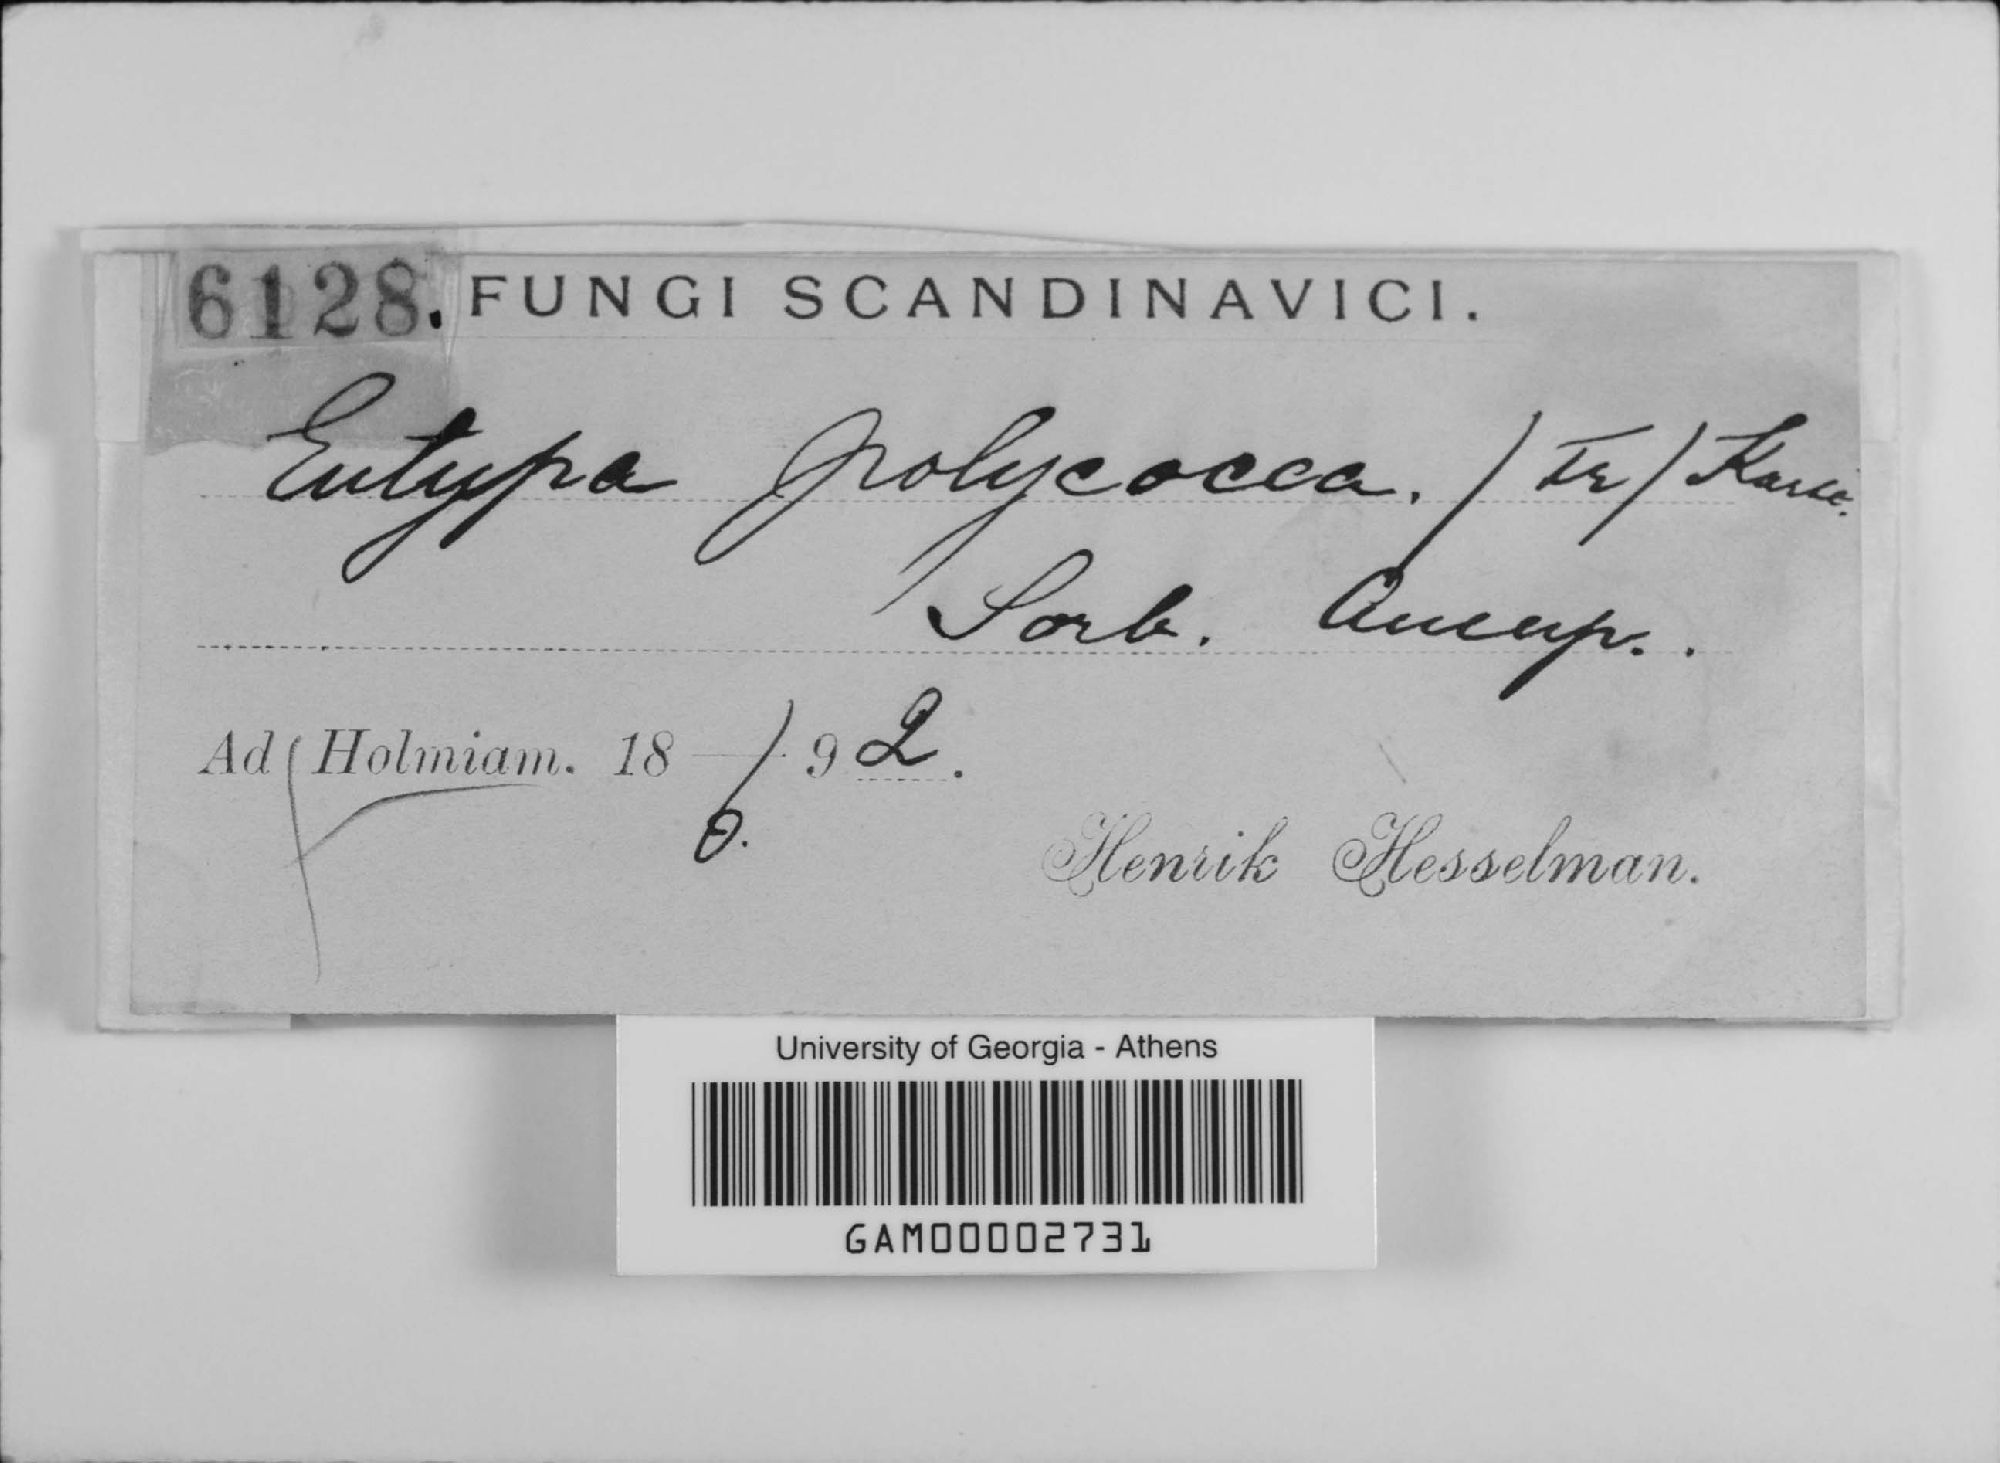 6128. FUNGI SCANDINAVICI.
Eutypa polycocca. (Fr) Karst.
Sorb. Aucup.
Ad Holmiam. 18 / 92.
Henrik Hesselman.
University of Georgia - Athens
GAM00002731